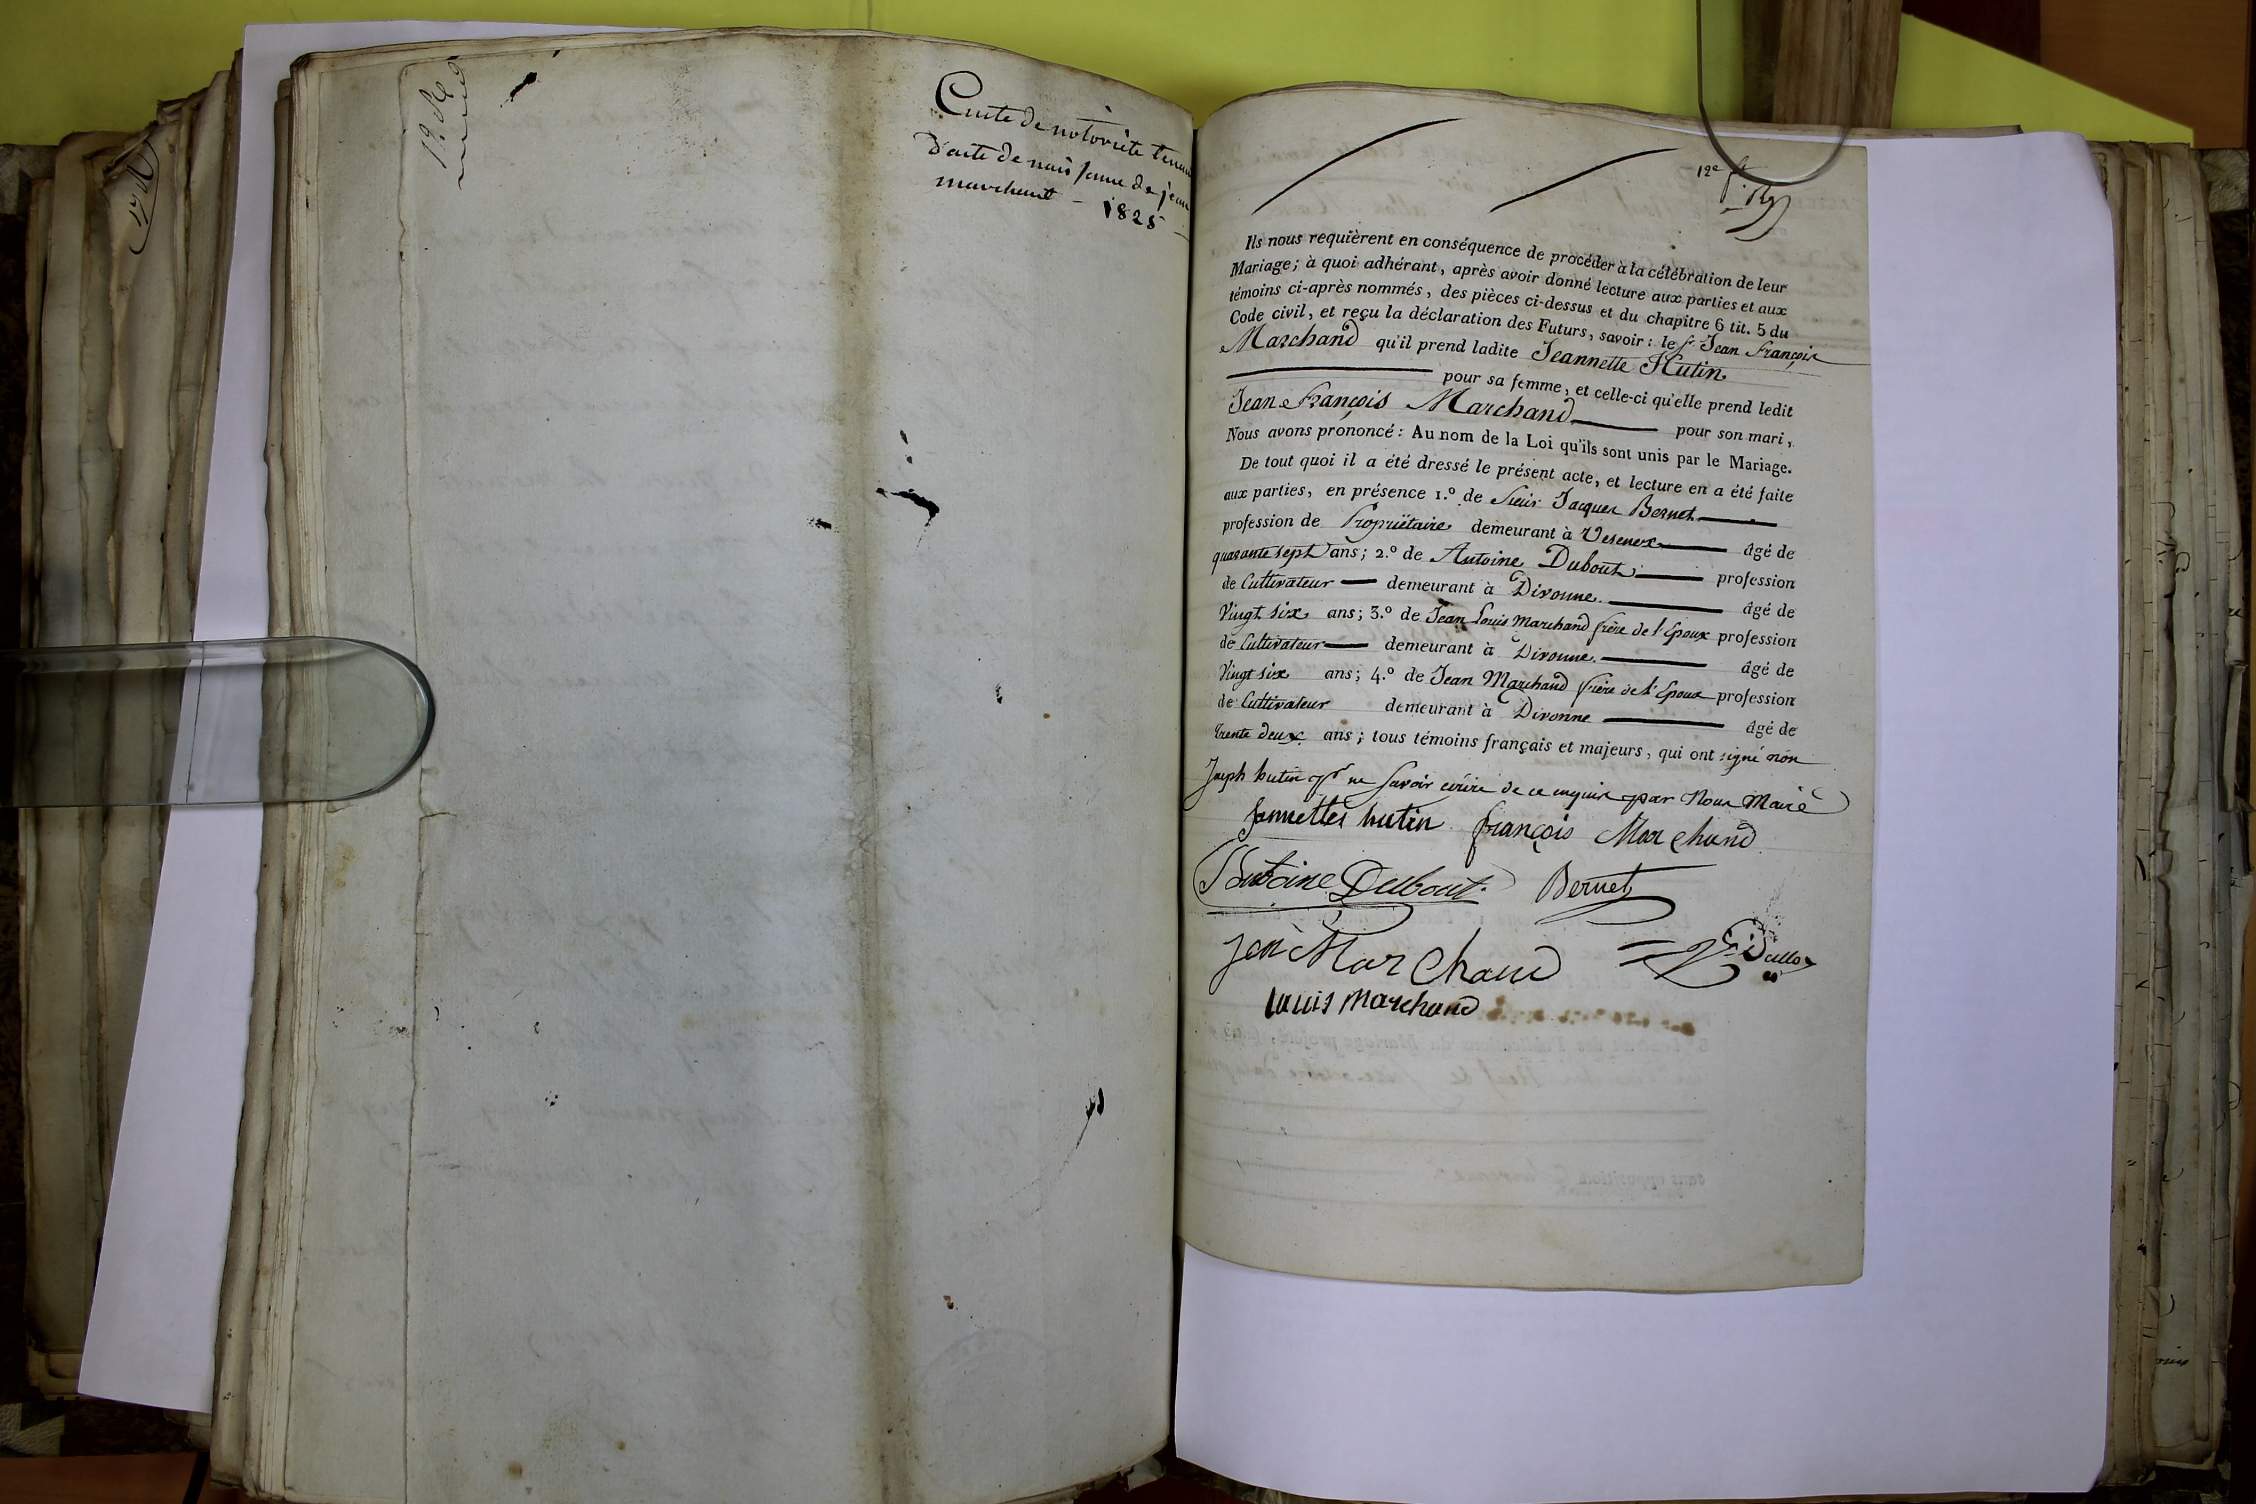 12e
Acte de notoriété tenan
D'acte de naissance de jean
marchant - 1825 -
12e ft
Ils nous requièrent en conséquence de procéder à la célébration de leur
Mariage; à quoi adhérant, après avoir donné lecture aux parties et aux
témoins ci-après nommés, des pièces ci-dessus et du chapitre 6 tit. 5 du
Code civil, et reçu la déclaration des Futurs, savoir: le sr Jean François
Marchand qu'il prend ladite Jeannette Hutin
pour sa femme, et celle-ci qu'elle prend ledit
Jean François Marchand pour son mari,
Nous avons prononcé: Au nom de la Loi qu'ils sont unis par le Mariage.
De tout quoi il a été dressé le présent acte, et lecture en a été faite
aux parties, en présence 1.º de Sieur Jacques Bernet
profession de Propriétaire demeurant à Vesenex âgé de
quarante sept ans; 2.º de Antoine Dubout profession
de Cultivateur demeurant à Divonne âgé de
Vingt six ans; 3.º de Jean Louis Marchand frère de l'Epoux profession
de Cultivateur demeurant à Divonne âgé de
Vingt six ans; 4.º de Jean Marchand frère de l'Epoux profession
de Cultivateur demeurant à Divonne âgé de
trente deux ans; tous témoins français et majeurs, qui ont signé non
Joseph hutin pr ne savoir écrire de ce enquis par Nous Maire
Jannettes hutin françois Marchand
Antoine Dubout. Bernet
Jen Marchand
Louis Marchand